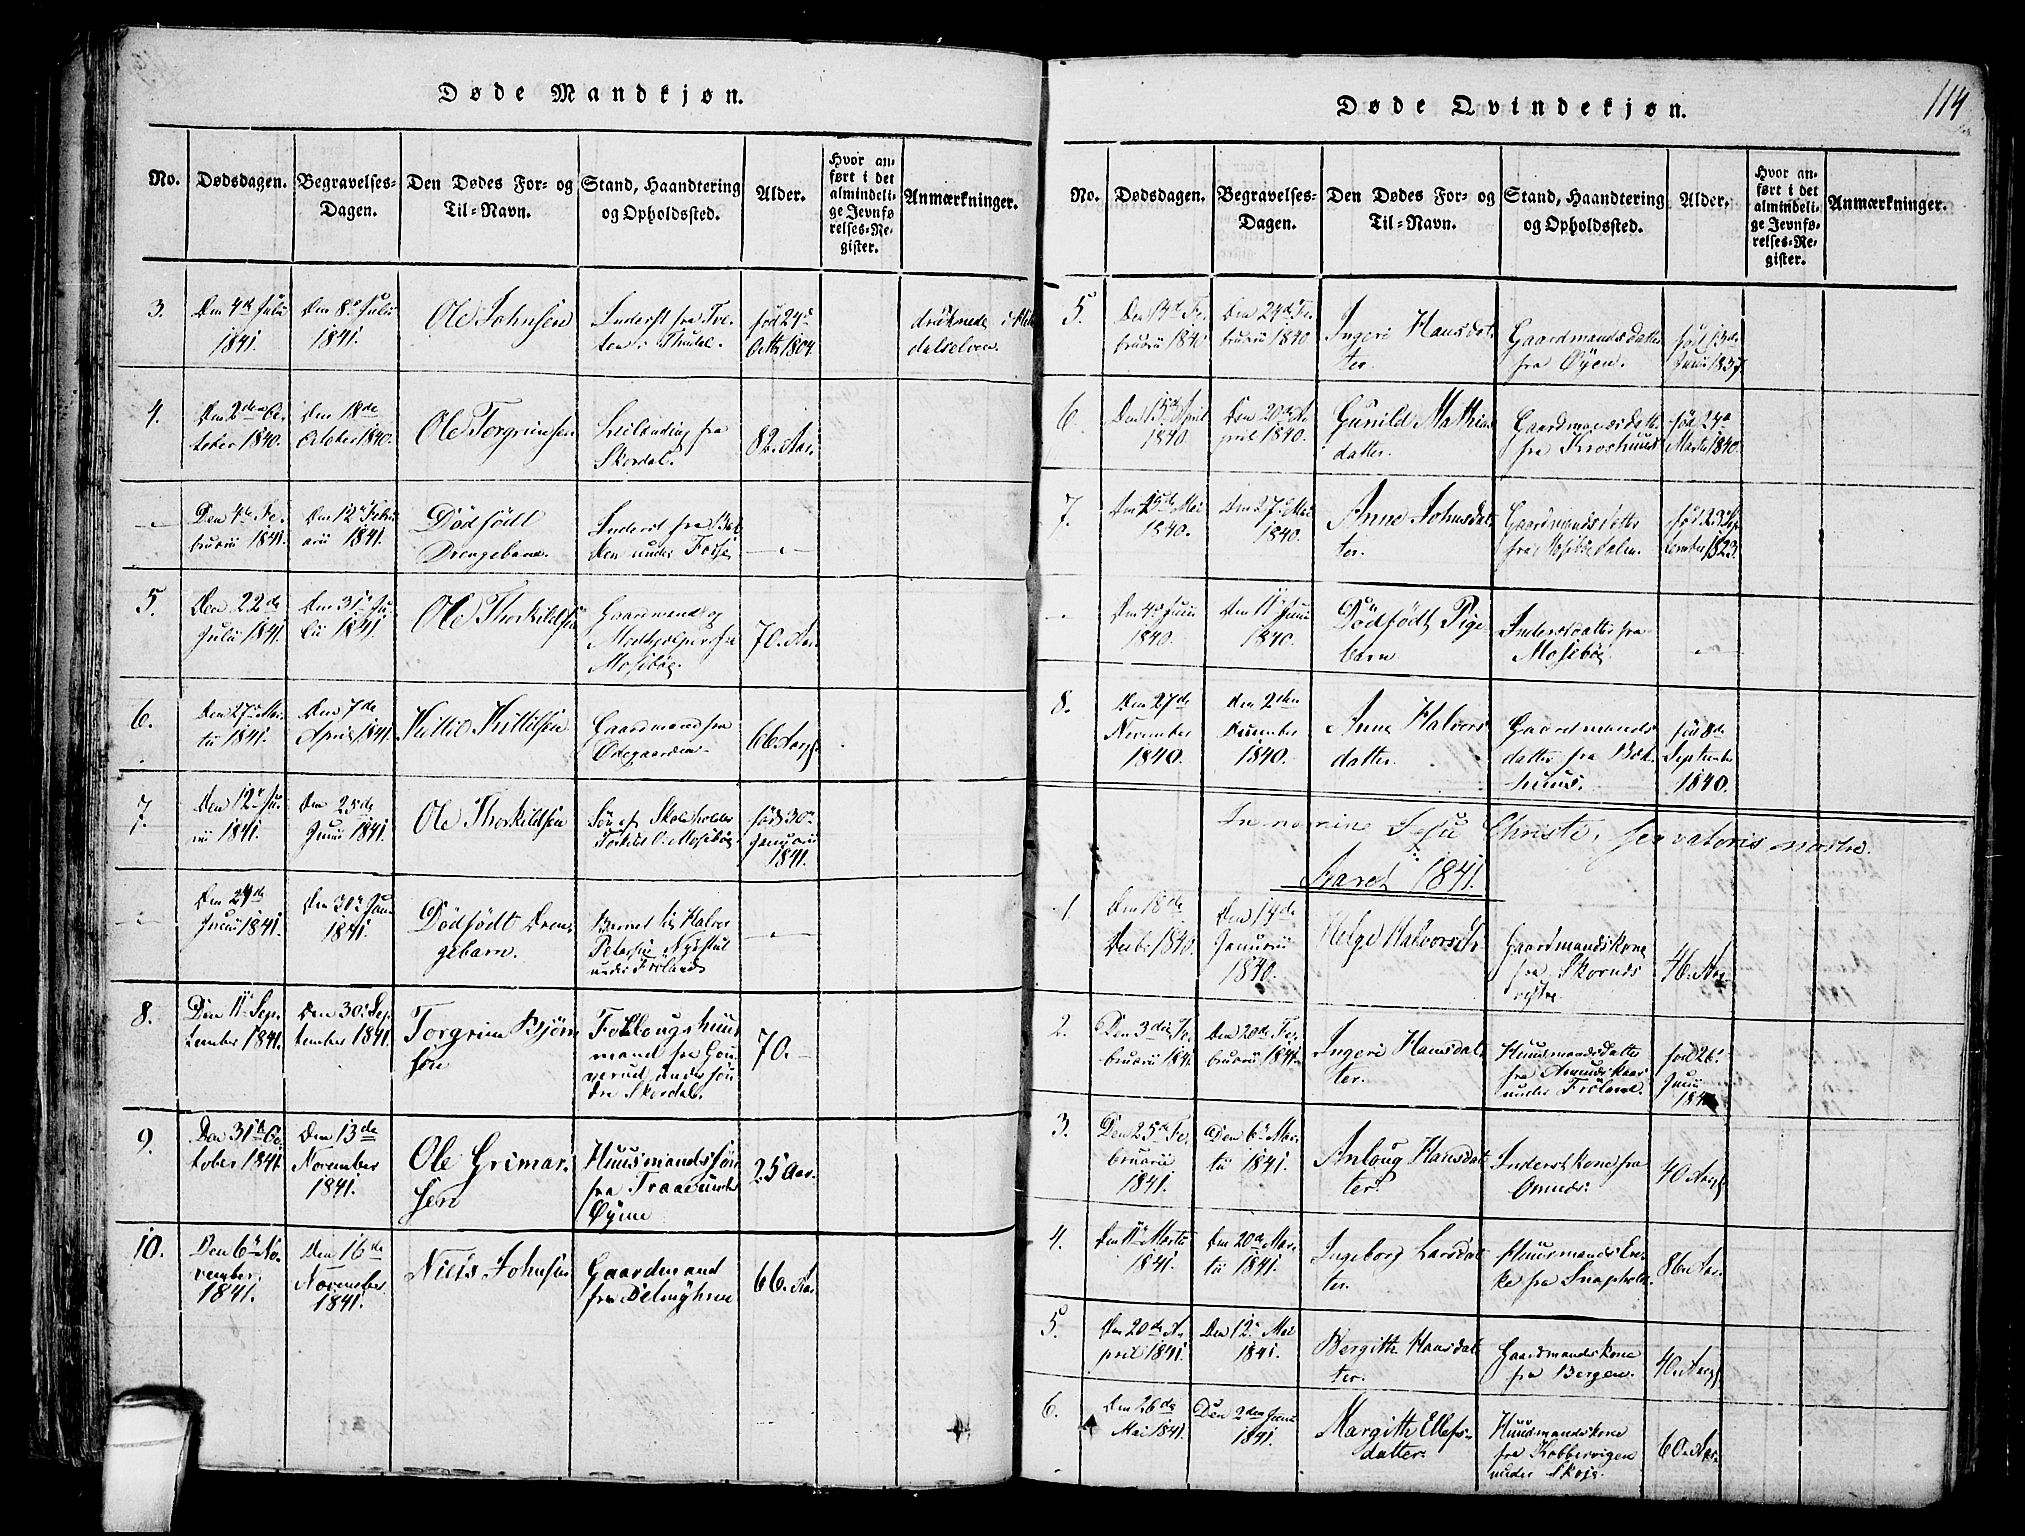 Døde Mandkjøn.
No.
Dødsdagen.
Begravelses-
Dagen.
Den Dødes For- og
Til-Navn.
Stand, Haandtering
og Opholdssted.
Alder.
Hvor an-
ført i det
almindeli-
ge Jevnfø
relses-Re-
gister.
Anmærkninger.
3.
Den 4de Julii
1841.
Den 8de Julii
1841.
Ole Johnsen
Inderst fra Tve-
ten i
født 24de
1804
druknede i
dalselven.
4.
Den 2den Oc-
tober 1840.
Den 18de
October 1840.
Ole Torgrimsen
fra
Skordal.
82 Aar.
Den 4de Fe-
bruarii 1841.
Den 12te Febru
arii 1841.
Dödfödt
Drengebarn.
Inderst fra
under
5.
Den 22de
Julii 1841.
Den 31te Ju-
lii 1841.
Ole Thorkildsen
Gaardmand og
Medhjelper fra
Mosebøe.
70 Aar.
6.
Den 27de Mar-
tii 1841.
Den 7de
April 1841.
Kittil Kittilsen
Gaardmand fra
Ødegaarden
66 Aar
7.
Den 12te Ju-
nii 1841.
Den 25de
Junii 1841.
Ole Thorkildsen
Sön af Skoleholder
Mosebøe
født 30te
Januarii
1841.
Den 24de
Junii 1841.
Den 30te Junii
1841.
Dödfödt Dren-
gebarn.
Barnet til Halvor
Petersen Nystul
under Fröland
8.
Den 11te Sep-
tember 1841.
Den 30te Sep-
tember 1841.
Torgrim Björn
sön
mand fra
under sön
dre Skordal.
70.
9.
Den 31te Oc-
tober 1841.
Den 13de
November
1841.
Ole Grimar-
sen
Huusmandssön
fra Traae under
Øyene
25 Aar.
10.
Den 6te No-
vember
1841.
Den 16de
November
1841.
Niels Johnsen
Gaardmand
fra
66 Aar.
Døde Qvindekjøn.
114
No.
Dødsdagen.
Begravelses-
Dagen.
Den Dødes For- og
Til-Navn.
Stand, Haandtering
og Opholdssted.
Alder.
Hvor an-
ført i det
almindeli-
ge Jevnfø-
relses-Re-
gister.
Anmærkninger.
5.
Fe-
bruarii 1840
Den 24de Fe-
bruarii 1840
Ingeri Hansdat-
ter.
Gaardmandsdatter
fra Øyen.
født 13de
Junii 1837.
6.
Den 15de April
1840.
Den 20de A-
pril 1840.
Gunild Mathias
datter.
Gaardmandsdatter
fra Kroshuus
født 24de
Martii 1840.
7.
Mai
1840.
Den 27de Mai
1840.
Anne Johnsdat-
ter.
Gaardmandsdatter
fra Mosebødalen.
født 23de Sep-
tember 1823.
Den 4de Junii
1840.
Den 11te Junii
1840.
Dödfödt Pige-
barn.
Inderstdatter fra
Mosebøe.
8.
Den 27de
November
1840.
Den 2den
December
1840.
Anne Halvors
datter.
Gaardmands
datter fra Bak-
huus.
født 8de
September
1840.
In nomine Jesu Christi, servatoris nostri.
Aaret 1841.
1
Den 18de
Decbr 1840.
Den 14de
Januarii
1840.
Helge Halvorsdtr.
Gaardmandskone
fra Skornes
vestre
46 Aar
2.
Den 3die Fe-
bruarii 1841
Den 20de Fe-
bruarii 1841.
Ingeri Hansdat-
ter.
Huusmandsdatter
fra Amundskaas
under Fröland.
født 26de
Junii
3.
Den 25de Fe-
bruarii
1841.
Den 6te Mar-
tii 1841.
Anloug Hansdat-
ter.
Inderstkone fra
Omnes.
40 Aar
4.
Den 11te Martii
1841.
Den 20de Mar-
tii 1841.
Ingeborg Larsdat-
ter.
Huusmands En-
ke fra Snapholt.
86 Aar.
5.
Den 20de A-
pril 1841.
Den 12te Mai
1841.
Bergithe Hansdat-
ter.
Gaardmandskone
fra Bergen.
40 Aar
6.
Den 26de
Mai 1841.
Den 2den Junii
1841.
Margithe Ellefs-
datter.
Huusmandskone
fra Kobbervigen
under Skoje.
60 Aar.